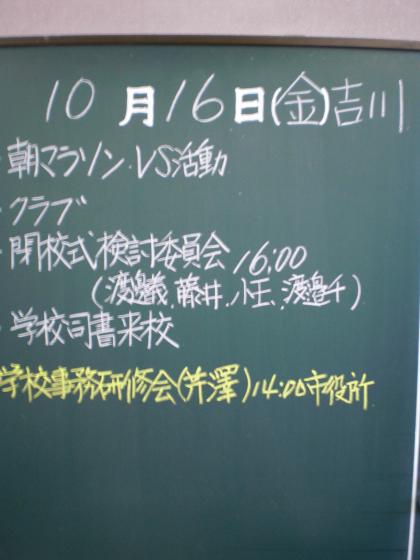 10月16日(金)吉川
・朝マラソン VS活動
・クラブ
・閉校式検討委員会 16:00
(渡邊義、藤井、小玉、渡邉千)
・学校司書来校
学校事務研修会(芹澤)14:00市役所